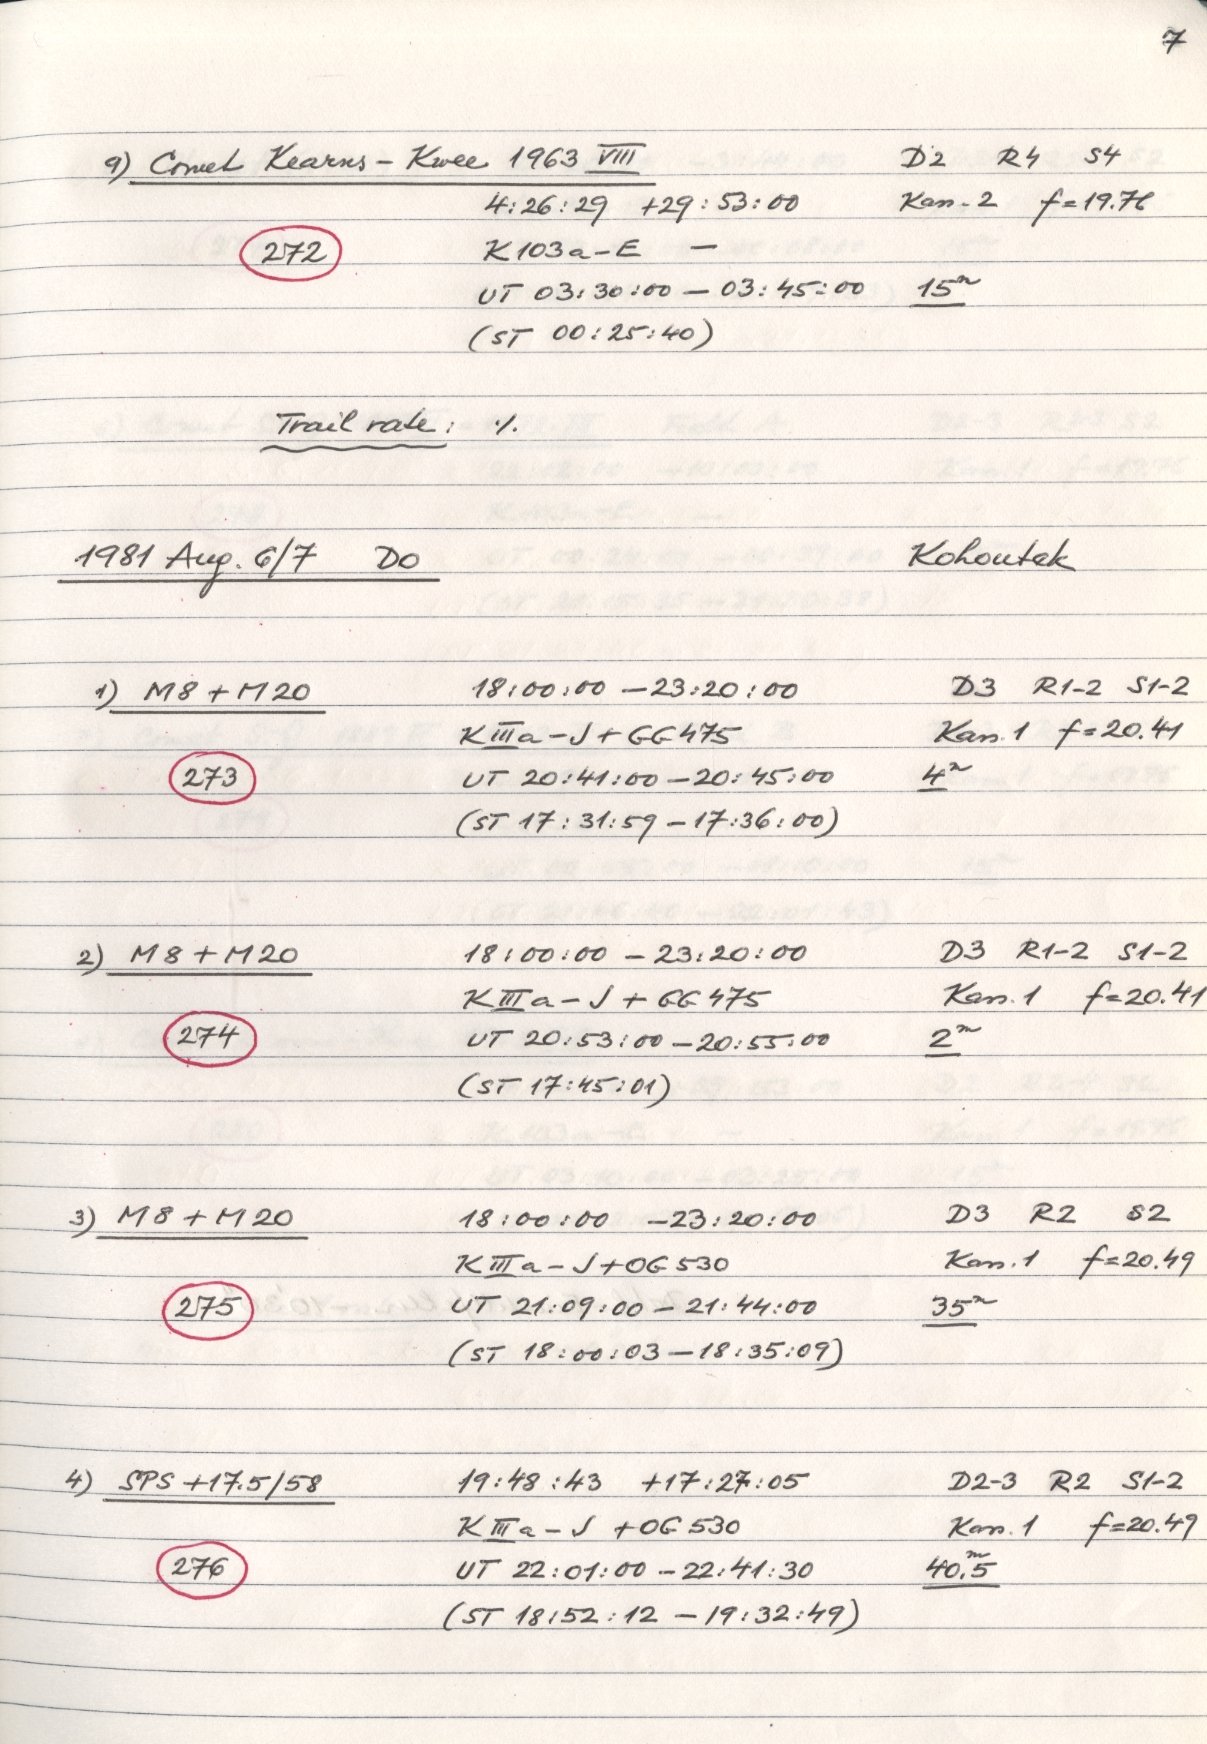 7
9) Comet Kearns - Kwee 1963 VIII D2 R4 S4
4:26:29 +29:53:00 Kas. 2 f=19.76
272 K103a-E —
UT 03:30:00 - 03:45:00 15m
(ST 00:25:40)
Trail rate: ./.
1981 Aug. 6/7 Do Kohoutek
1) M8+M20 18:00:00 -23:20:00 D3 R1-2 S1-2
KIIIa-J+GG475 Kas. 1 f=20.41
273 UT 20:41:00 -20:45:00 4m
(ST 17:31:59 -17:36:00)
2) M8+M20 18:00:00 -23:20:00 D3 R1-2 S1-2
KIIIa-J+GG475 Kas. 1 f=20.41
274 UT 20:53:00 -20:55:00 2m
(ST 17:45:01)
3) M8+M20 18:00:00 -23:20:00 D3 R2 S2
KIIIa-J+OG530 Kas. 1 f=20.49
275 UT 21:09:00 - 21:44:00 35m
(ST 18:00:03 -18:35:09)
4) SPS+17.5/58 19:48:43 +17:27:05 D2-3 R2 S1-2
KIIIa-J +OG530 Kas. 1 f=20.49
276 UT 22:01:00 -22:41:30 40.5m
(ST 18:52:12 - 19:32:49)